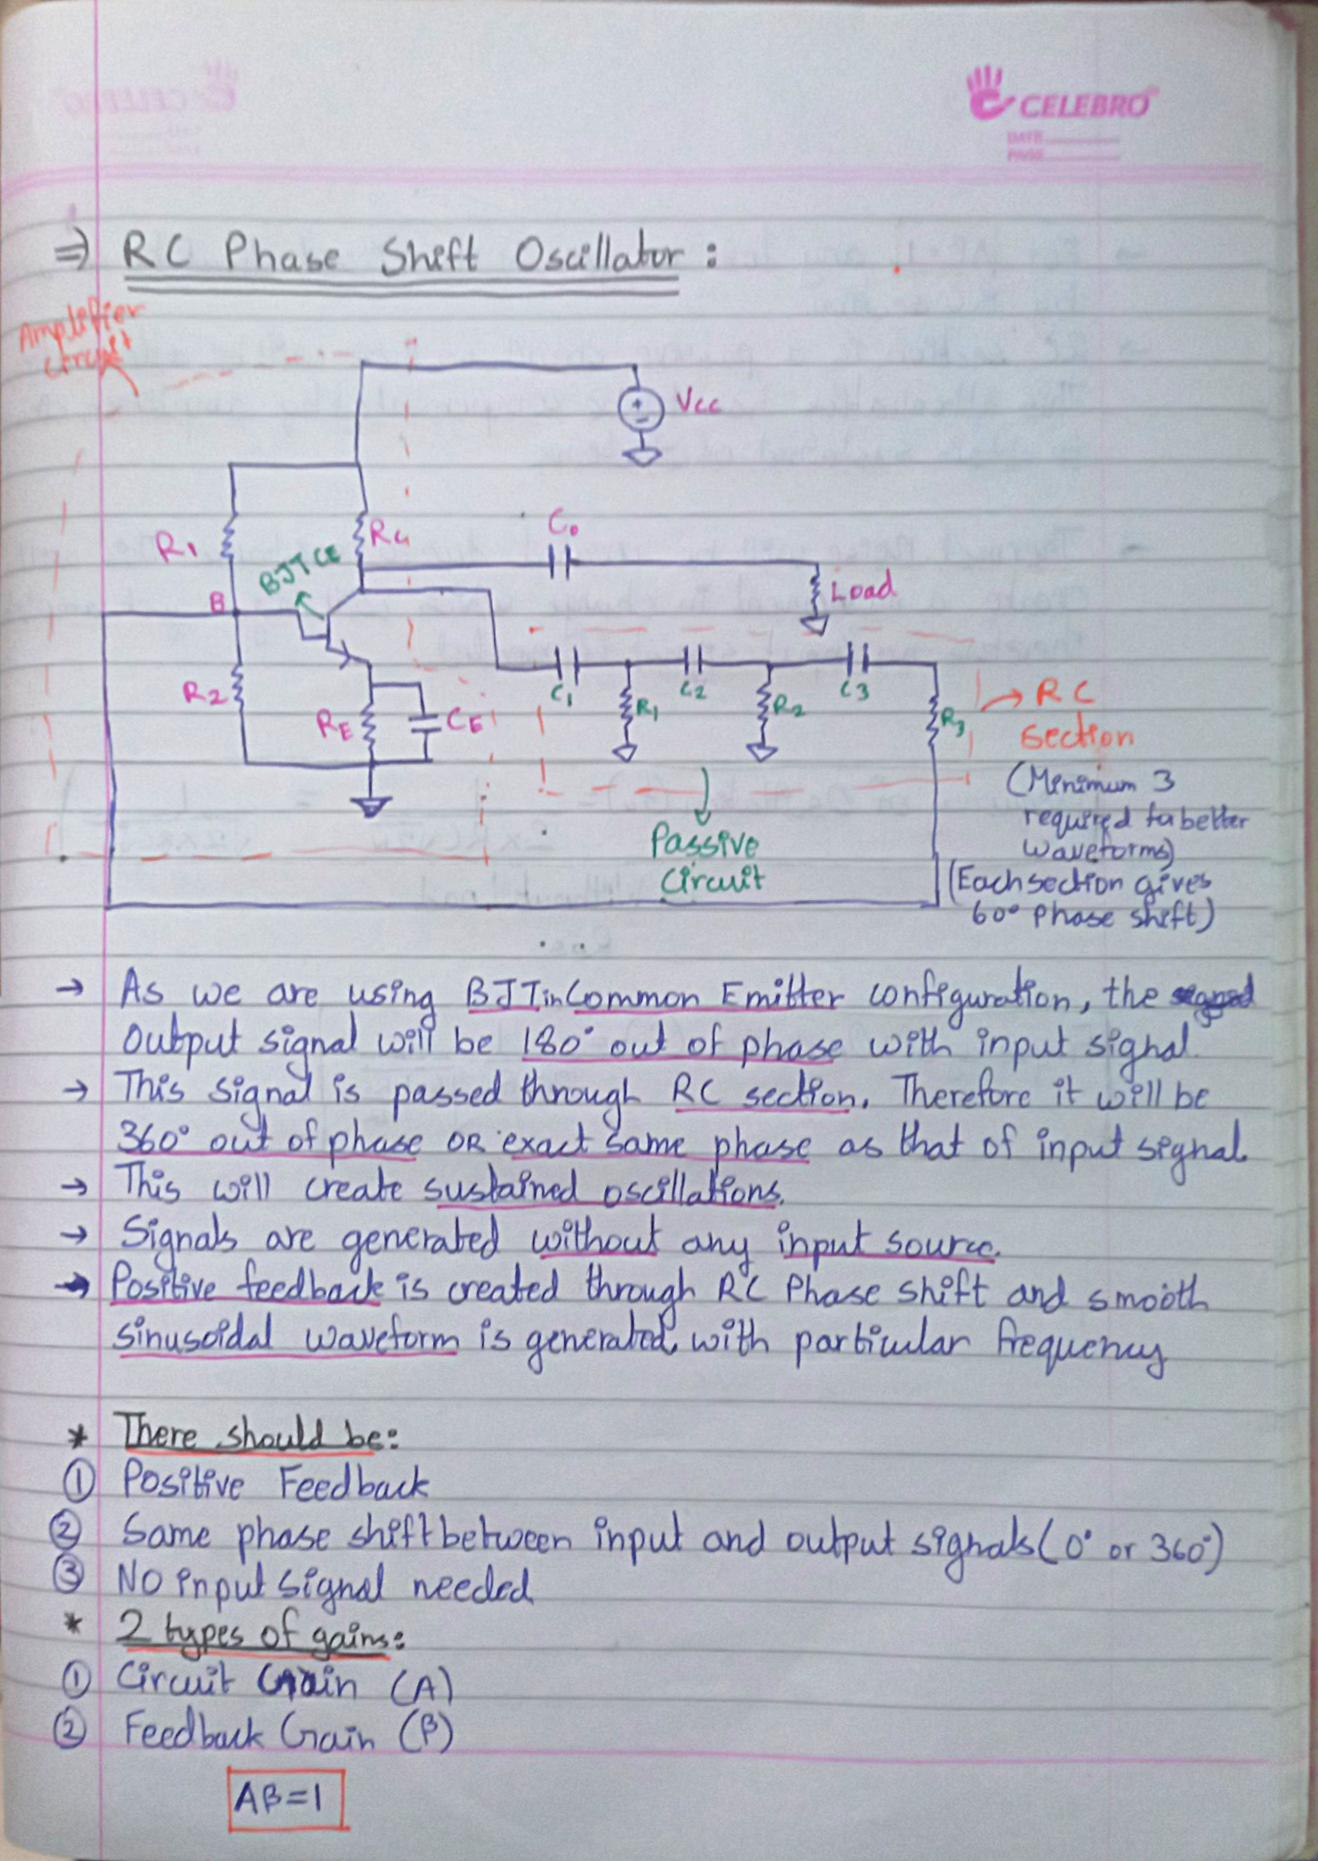 CELEBRO
DATE
PAGE
⇒ RC Phase Shift Oscillator :
Amplifier
circuit
Vcc
R1
BJT CE
Rc
Co
Load
B
R2
RE
CE
C1
R1
C2
R2
C3
R3
→ RC
section
(Minimum 3
required for better
waveforms)
(Each section gives
60° phase shift)
Passive
Circuit
→ As we are using BJT in Common Emitter configuration, the
Output signal will be 180° out of phase with input signal.
→ This signal is passed through RC section. Therefore it will be
360° out of phase OR exact same phase as that of input signal.
→ This will create sustained oscillations.
→ Signals are generated without any input source.
→ Positive feedback is created through RC Phase shift and smooth
sinusoidal waveform is generated, with particular frequency
* There should be:
① Positive Feedback
② Same phase shift between input and output signals (0° or 360°)
③ NO input signal needed
* 2 types of gains:
① Circuit Gain (A)
② Feedback Gain (β)
Aβ=1